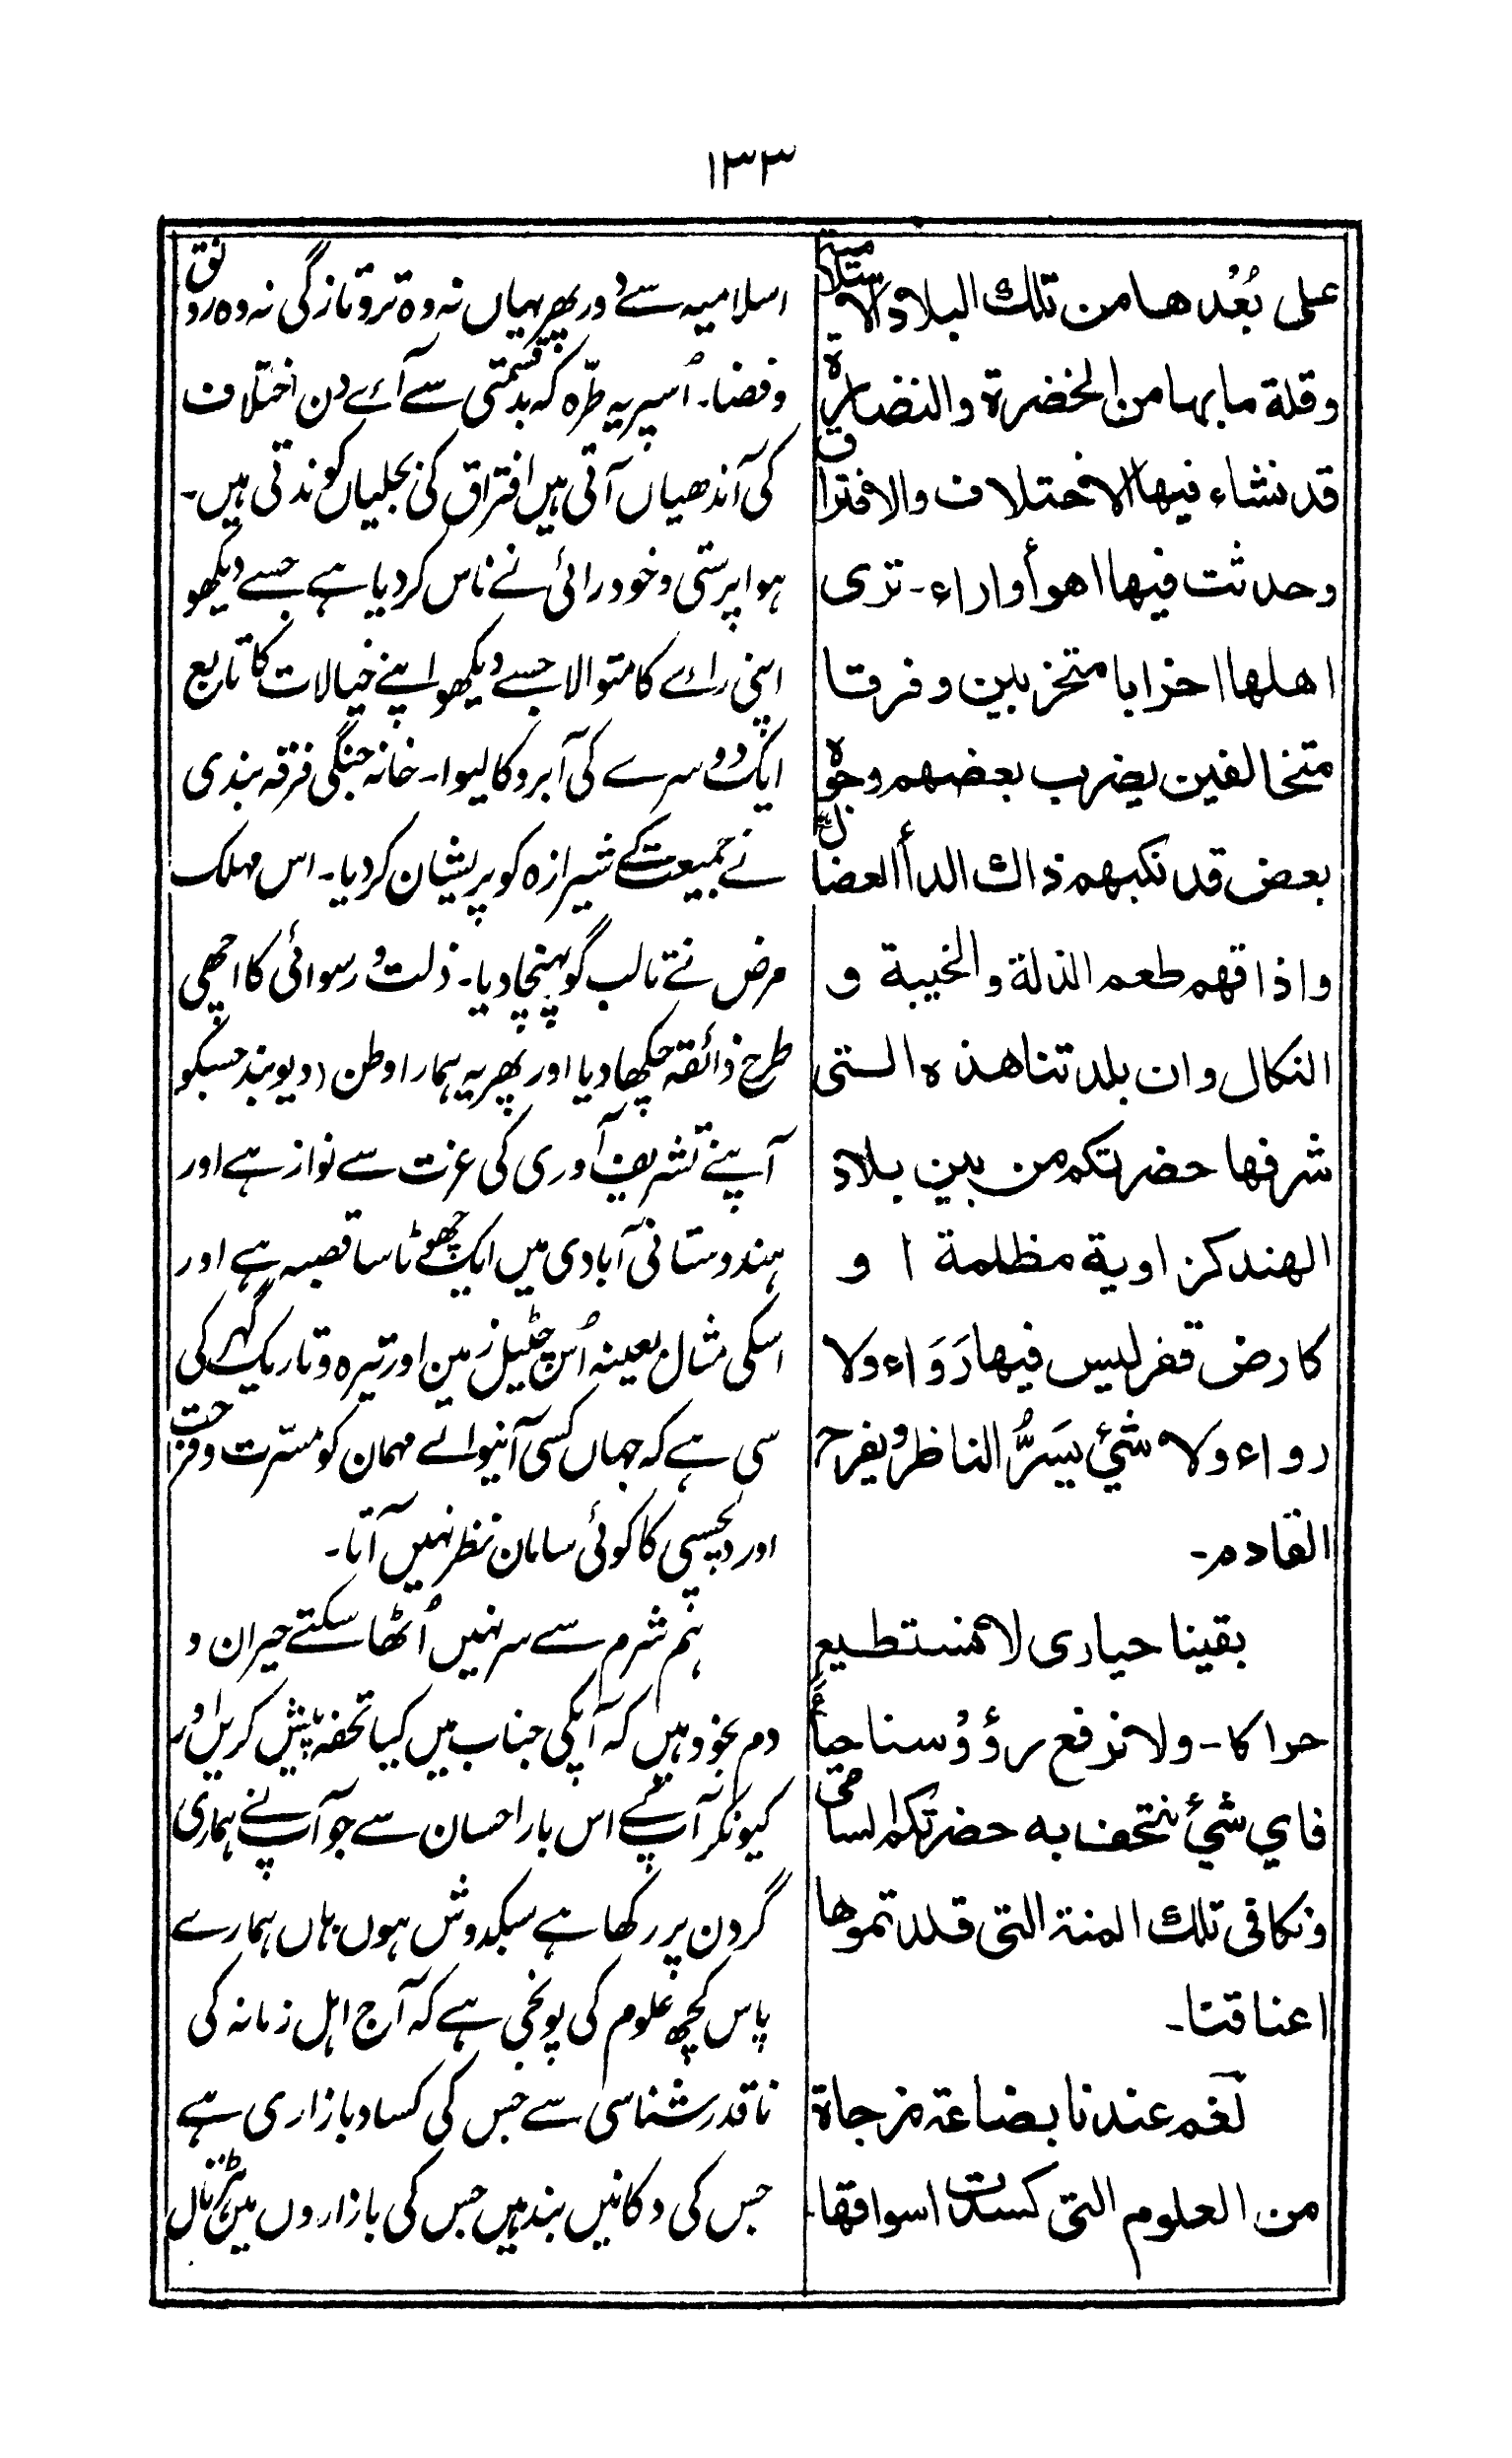 ۱۳۳
على بُعُدها من تلك البلاد الاسلامية
وقلة ما بها من الخضرة والنضارة
قد نشاء فيها الاختلاف والافتراق
وحدثت فيها اهوأ واراء۔ ترى
اهلها احزابا متحزبين وفرقا
متخالفين يضرب بعضهم وجوه
بعض قد نكبهم ذاك الدأ العضال
واذاقهم طعم الذلة والخيبة و
النكال وان بلدتنا هذه التى
شرفها حضرتكم من بين بلاد
الهند كزاوية مظلمة ا و
كارض قفر ليس فيها رَوَاء ولا
رواء ولا شئ يَسَرُّ الناظر و يفرح
القادم۔
بقينا حيارى لا نستطيع
حراكا۔ ولا نرفع رؤوُسنا حياءً
فاي شئ نتحف به حضرتكم السامى
ونكافى تلك المنة التى قلدتموها
اعناقنا۔
نعم عندنا بضاعة مزجاة
من العلوم التى كسدت اسواقها۔
اسلامیہ سے دور پھر یہاں نہ وہ تروتازگی نہ وہ رونق
و فضا۔ اُسپر یہ طرّہ کہ بدقسمتی سے آئے دن اختلاف
کی آندھیاں آتی ہیں افتراق کی بجلیاں کوندتی ہیں۔
ہوا پرستی و خود رائی نے ناس کر دیا ہے جسے دیکھو
اپنی رائے کا متوالا جسے دیکھو اپنے خیالات کا تابع
ایک دوسرے کی آبرو کا لیوا۔ خانہ جنگی فرقہ بندی
نے جمیعت کے شیرازہ کو پریشان کر دیا۔ اس مہلک
مرض نے تا لب گو پہنچا دیا۔ ذلت و رسوائی کا اچھی
طرح ذائقہ چکھا دیا اور پھر یہ ہمارا وطن (دیوبند جسکو
آپنے تشریف آوری کی عزت سے نوازہے اور
ہندوستانی آبادی میں ایک چھوٹا سا قصبہ ہے اور
اسکی مثال بعینہ اُس چٹیل زمین اور تیرہ و تاریک گہر کی
سی ہے کہ جہاں کسی آنیوالے مہمان کو مسرّت و فرحت
اور دلچسپی کا کوئی سامان نظر نہیں آتا۔
ہم شرم سے سر نہیں اُٹھا سکتے حیران و
دم بخود ہیں کہ آپکی جناب میں کیا تحفہ پیش کریں اور
کیونکر آپ کے اس بار احسان سے جو آپ نے ہماری
گردن پر رکھا ہے سبکدوش ہوں ہاں ہمارے
پاس کچھ علوم کی پونجی ہے کہ آج اہل زمانہ کی
ناقدر شناسی سے جس کی کساد بازاری ہے
جس کی دکانیں بند ہیں جس کی بازاروں میں ہڑتال